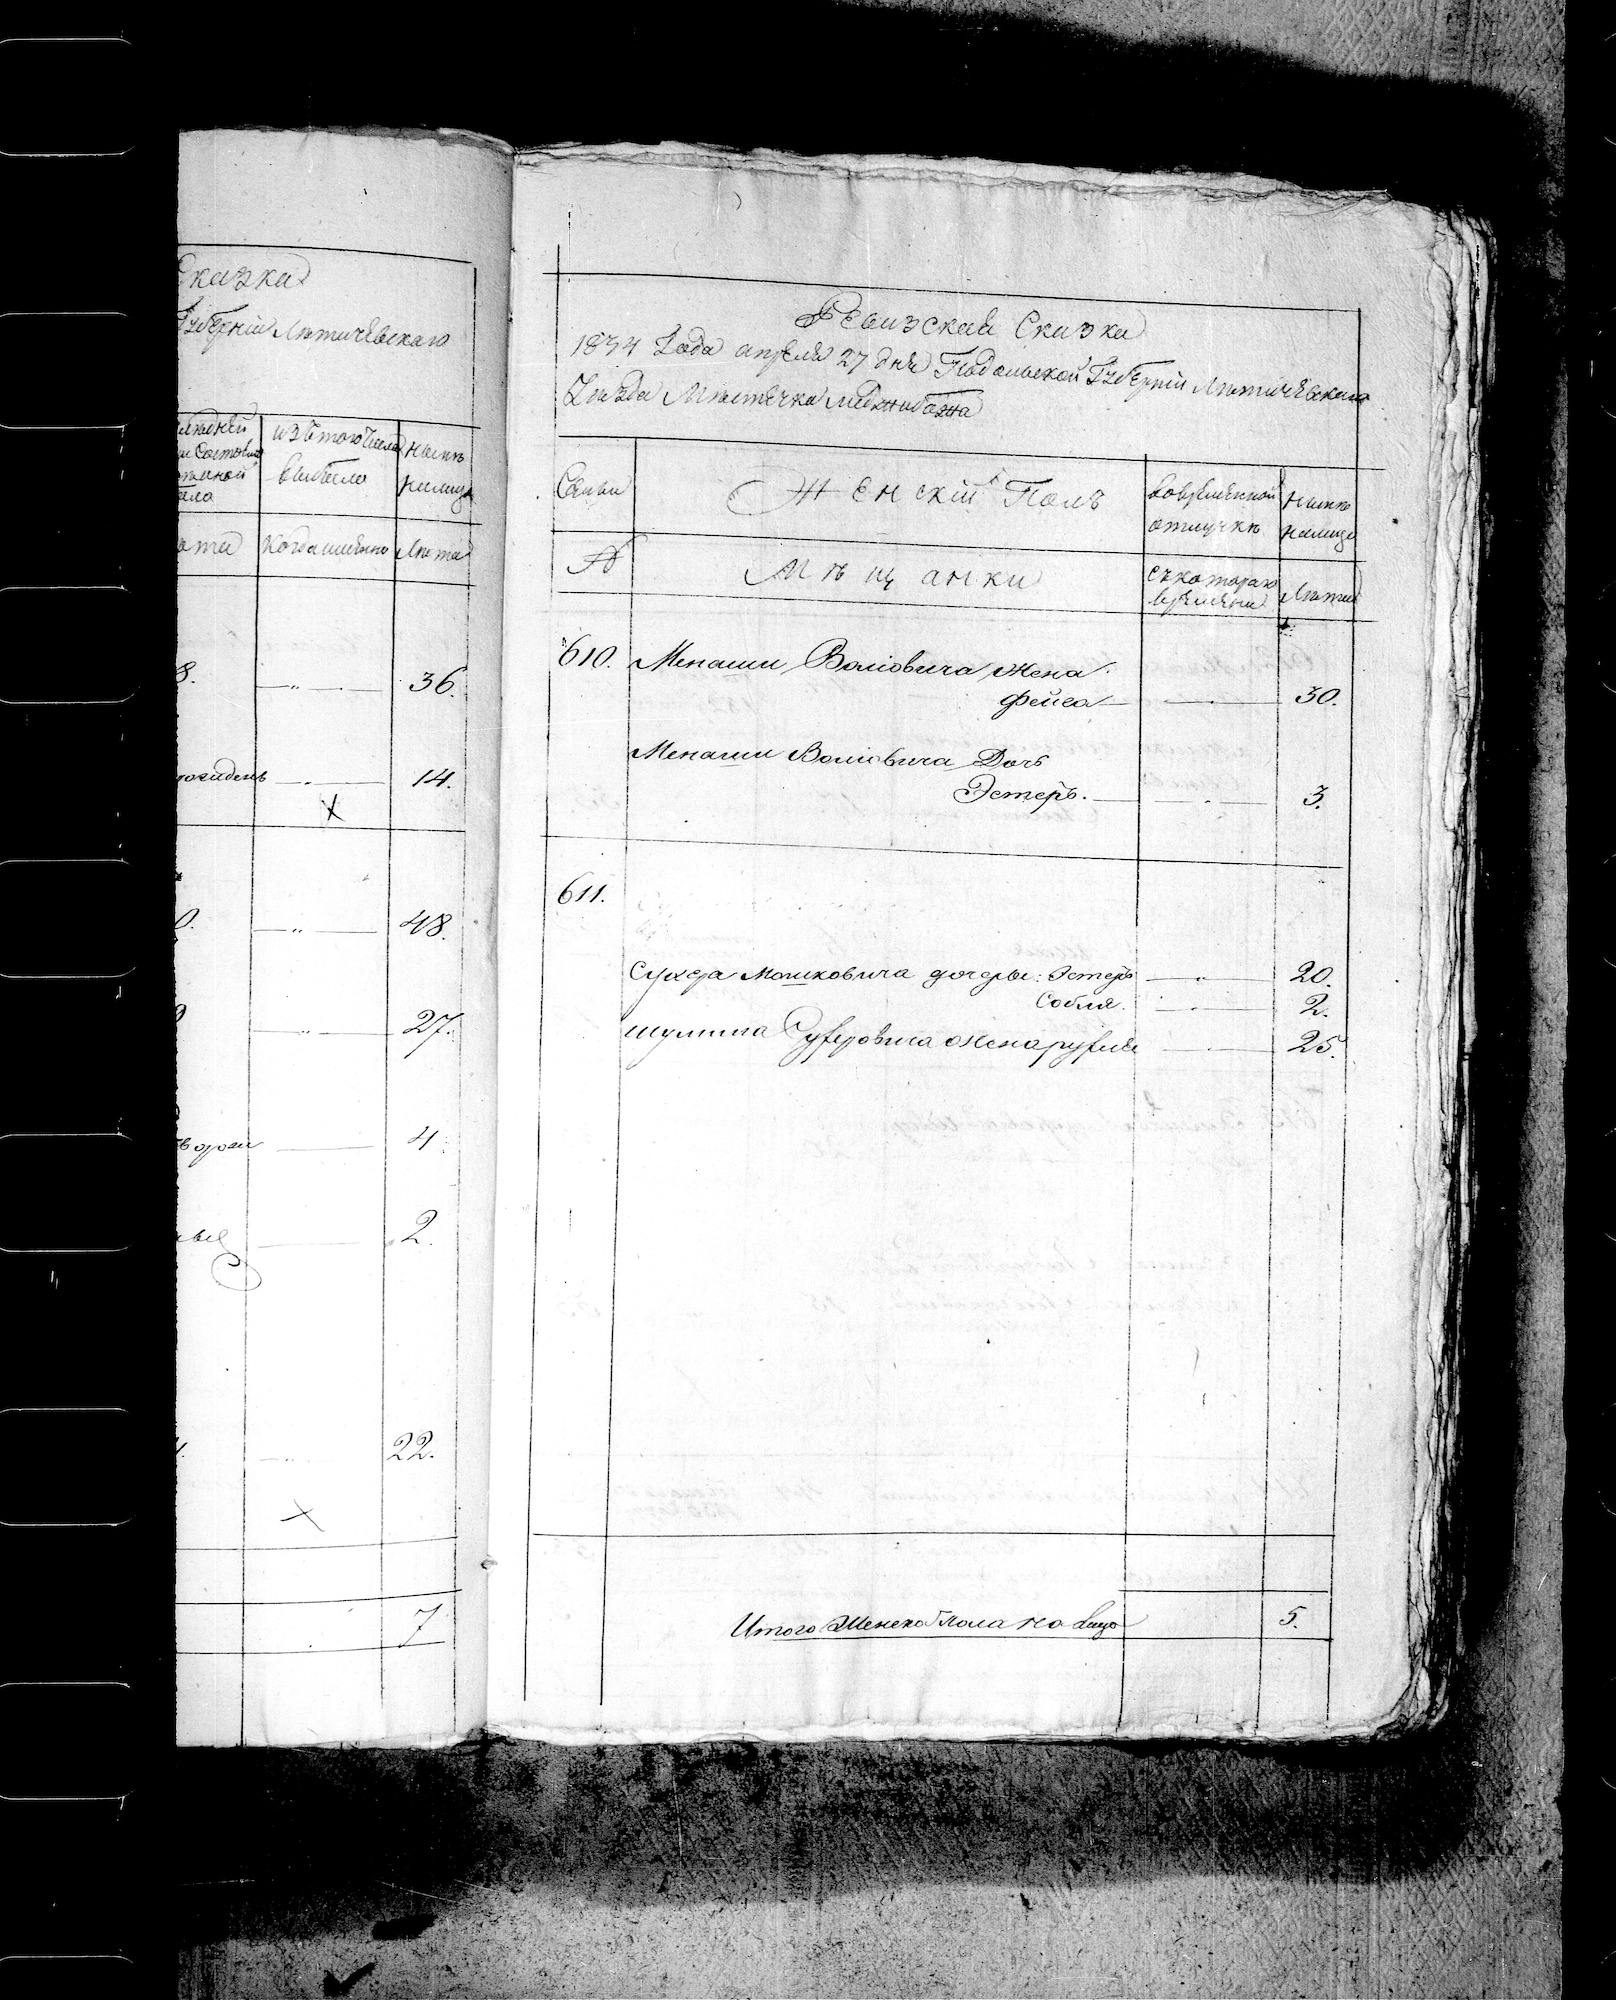 Сказка
Губернiи Лѣтичевскаго
изъ того числа
выбыло
нынѣ
налицо
когда имянно
Лѣта
8.
36.
14.
X
0.
48.
27.
4
2.
22.
X
7
Ревизская Сказка
1834 Года апреля 27 дня Подольской Губернiи Лѣтичевскаго
Уѣзда Мѣстечка Меджибожа
Семьи
Женскiй Полъ
вовременной
отлучкѣ
Нынѣ
налицо
№
Мѣщанки
съкотораго
времени
Лѣта
610.
Менаши Волiовича Жена
Фейга
30.
Менаши Волiовича Дочь
Эстеръ.
3.
611.
Сухера Мошковича дочеры: Эстеръ
20.
Собля.
2.
Шулима Сухеровича жена рухля
25.
Итого Женска Пола на лицо
5.